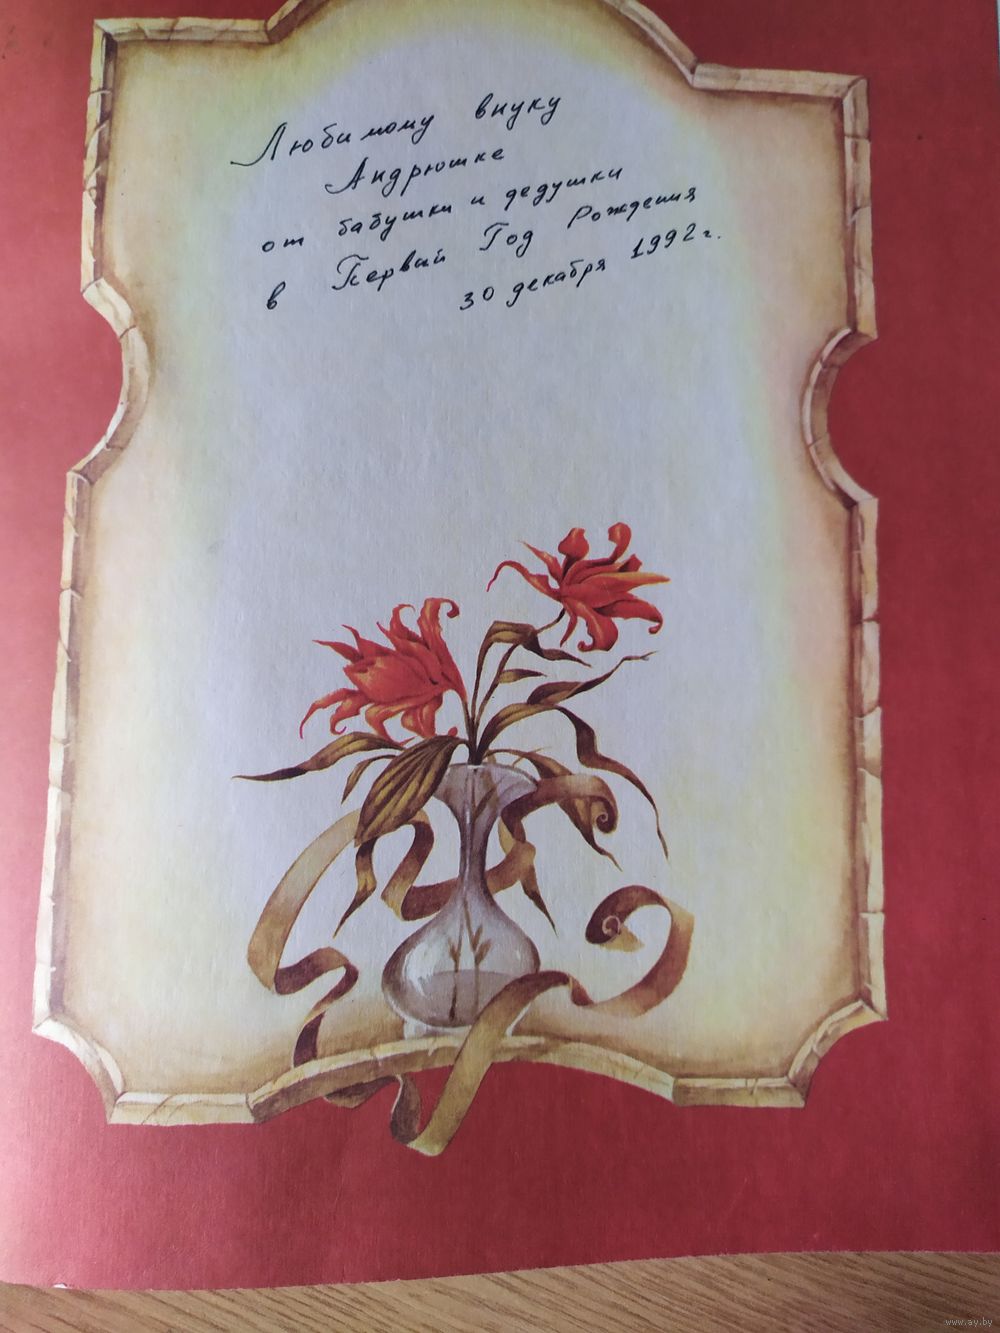 Любимому внуку
Андрюшке
от бабушки и дедушки
в Первый Год Рождения
30 декабря 1992 г.
www.ay.by